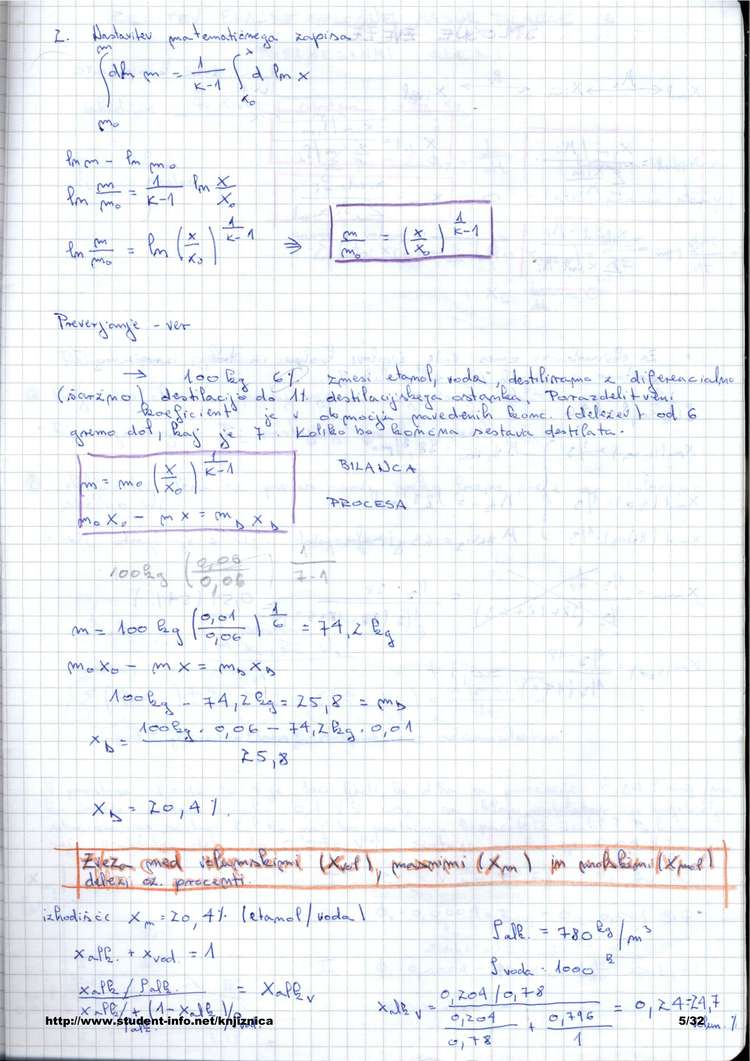 2. Nastavitev matematičnega zapisa
∫_{m₀}^{m} d ln m = 1/(K-1) ∫_{x₀}^{x} d ln x
ln m - ln m₀
ln m/m₀ = 1/(K-1) ln x/x₀
ln m/m₀ = ln (x/x₀)^{1/(K-1)} ⇒ m/m₀ = (x/x₀)^{1/(K-1)}
Preverjanje - ver
→ 100 kg 6% zmesi etanol, voda, destiliramo z diferencialno
(šaržno) destilacijo do 1% destilacijskega ostanka. Porazdelitveni
koeficient je v območju navedenih konc. (deležev) od 6
gremo dol, kaj je 7. Koliko bo končna sestava destilata.
m = m₀ (x/x₀)^{1/(K-1)} BILANCA
m₀x₀ - mx = m_D x_D PROCESA
100kg (0,06/0,06) 1/(7-1)
m = 100 kg (0,01/0,06)^{1/6} = 74,2 kg
m₀x₀ - mx = m_D x_D
100kg - 74,2kg = 25,8 = m_D
x_D = (100kg · 0,06 - 74,2kg · 0,01)/25,8
x_D = 20,4 %.
Zveza med volumskimi (Xvol), masnimi (Xm) in molskimi (Xmol)
deleži oz. procenti.
izhodišče Xm = 20,4% (etanol/voda)
ρ alk. = 780 kg/m³
x alk. + x vod. = 1
ρ voda = 1000
(x alk / ρ alk.)/(x alk / ρ alk + (1 - x alk)/ρ vod.) = X alk v
x alk v = (0,204/0,78)/(0,204/0,78 + 0,796/1) = 0,24 = 24,7
http://www.student-info.net/knjiznica 5/32